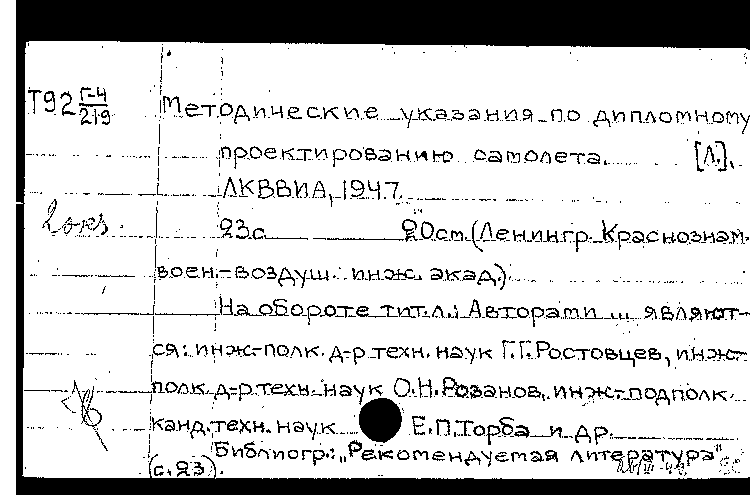 Т92 Г-4/219 Методические указания по дипломному
проектированию самолета. [Л].
ЛКВВИА, 1947.
2 экз. 23с 20см. (Ленингр. Краснознам.
воен.-воздуш. инж. акад.)
На обороте тит.л.: Авторами ... являют-
ся: инж-полк. д-р техн. наук Г.Г.Ростовцев, инж-
полк. д-р техн. наук О.Н.Розанов, инж-подполк.
канд. техн. наук Е.П.Торба и др.
Библиогр.: „Рекомендуемая литература"
(с.23).